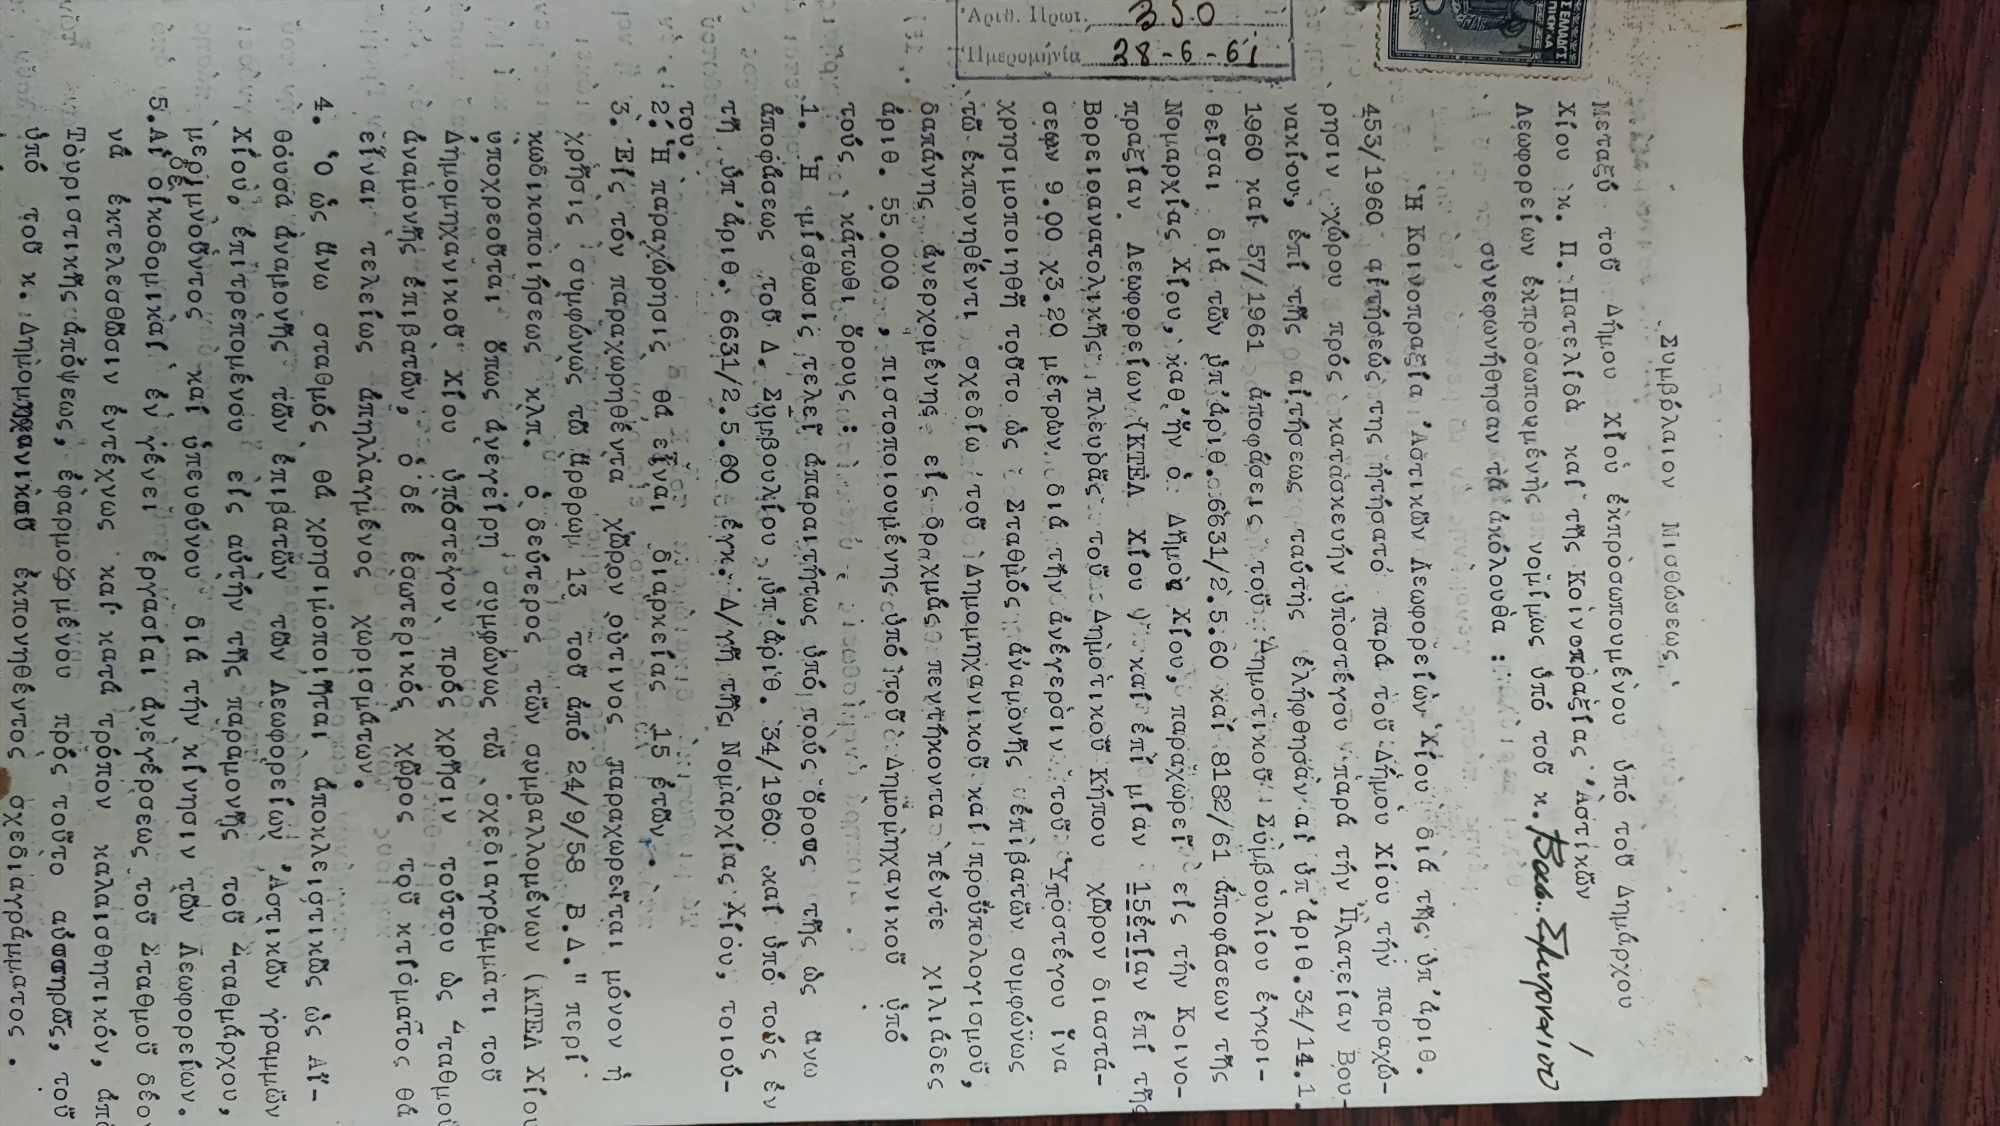 Ἀριθ. Πρωτ. 350
Ἡμερομηνία 28-6-61
Συμβόλαιον Μισθώσεως
Μεταξύ τοῦ Δήμου Χίου ἐκπροσωπουμένου ὑπό τοῦ Δημάρχου
Χίου κ. Π. Πατελίδα καί τῆς Κοινοπραξίας Ἀστικῶν
Λεωφορείων ἐκπροσωπουμένης νομίμως ὑπό τοῦ κ.
συνεφωνήθησαν τά ἀκόλουθα :
Ἡ Κοινοπραξία Ἀστικῶν Λεωφορείων Χίου διά τῆς ὑπ'ἀριθ.
453/1960 αἰτήσεώς της ἠτήσατο παρά τοῦ Δήμου Χίου τήν παραχώ-
ρησιν χώρου πρός κατασκευήν ὑποστέγου παρά τήν Πλατεῖαν Βου-
νακίου, ἐπί τῆς αἰτήσεως ταύτης ἐλήφθησαν αἱ ὑπ'ἀριθ.34/14.1.
1960 καί 57/1961 ἀποφάσεις τοῦ Δημοτικοῦ Συμβουλίου ἐγκρι-
θεῖσαι διά τῶν ὑπ'ἀριθ.6631/2.5.60 καί 8182/61 ἀποφάσεων τῆς
Νομαρχίας Χίου, καθ'ἥν ὁ Δῆμος Χίου, παραχωρεῖ εἰς τήν Κοινο-
πραξίαν Λεωφορείων (ΚΤΕΛ Χίου) καί ἐπί μίαν 15ετίαν ἐπί τῆς
Βορειοανατολικῆς πλευρᾶς τοῦ Δημοτικοῦ Κήπου χῶρον διαστά-
σεων 9.00 χ3.20 μέτρων διά τήν ἀνέγερσιν τοῦ Ὑποστέγου ἵνα
χρησιμοποιηθῇ τοῦτο ὡς Σταθμός ἀναμονῆς ἐπιβατῶν συμφώνως
τῶ ἐκπονηθέντι σχεδίω τοῦ Δημομηχανικοῦ καί προϋπολογισμοῦ,
δαπάνης ἀνερχομένης εἰς δραχμάς πεντήκοντα πέντε χιλιάδες
ἀριθ. 55.000 , πιστοποιουμένης ὑπό τοῦ Δημομηχανικοῦ ὑπό
τούς κάτωθι ὅρους :
1. Ἡ μίσθωσις τελεῖ ἀπαραιτήτως ὑπό τούς ὅρους τῆς ὡς ἄνω
ἀποφάσεως τοῦ Δ. Συμβουλίου ὑπ'ἀριθ. 34/1960 καί ὑπό τούς ἐν
τῆ ὑπ'ἀριθ. 6631/2.5.60 ἐγκ. Δ/γῆ τῆς Νομαρχίας Χίου, τοιού-
του.
2. Ἡ παραχώρησις θά εἶναι διαρκείας 15 ἐτῶν.
3. Εἰς τόν παραχωρηθέντα χῶρον οὗτινος παραχωρεῖται μόνον ἡ
χρῆσις συμφώνως τῶ ἄρθρω 13 τοῦ ἀπό 24/9/58 Β.Δ." περί
κωδικοποιήσεως κλπ. ὁ δεύτερος τῶν συμβαλλομένων (ΚΤΕΛ Χίου
ὑποχρεοῦται ὅπως ἀνεγείρῃ συμφώνως τῶ σχεδιαγράμματι τοῦ
Δημομηχανικοῦ Χίου ὑπόστεγον πρός χρῆσιν τούτου ὡς Σταθμοῦ
ἀναμονῆς ἐπιβατῶν, ὁ δέ ἐσωτερικός χῶρος τοῦ κτίσματος θά
εἶναι τελείως ἀπηλλαγμένος χωρισμάτων.
4. Ὁ ὡς ἄνω σταθμός θά χρησιμοποιῆται ἀποκλειστικῶς ὡς Αἴ-
θουσα ἀναμονῆς τῶν ἐπιβατῶν τῶν Λεωφορείων Ἀστικῶν γραμμῶν
Χίου, ἐπιτρεπομένου εἰς αὐτήν τῆς παραμονῆς τοῦ Σταθμάρχου,
μεριμνοῦντος καί ὑπευθύνου διά τήν κίνησιν τῶν Λεωφορείων.
5.Αἱ οἰκοδομικαί ἐν γένει ἐργασίαι ἀνεγέρσεως τοῦ Σταθμοῦ δέον
ἐκτελεσθῶσιν ἐντέχνως καί κατά τρόπον καλαισθητικόν, ἀπό
Τουριστικῆς ἀπόψεως, ἐφαρμοζομένου πρός τοῦτο αὐστηρῶς, τοῦ
ὑπό τοῦ κ. Δημομηχανικοῦ ἐκπονηθέντος σχεδιαγράμματος .